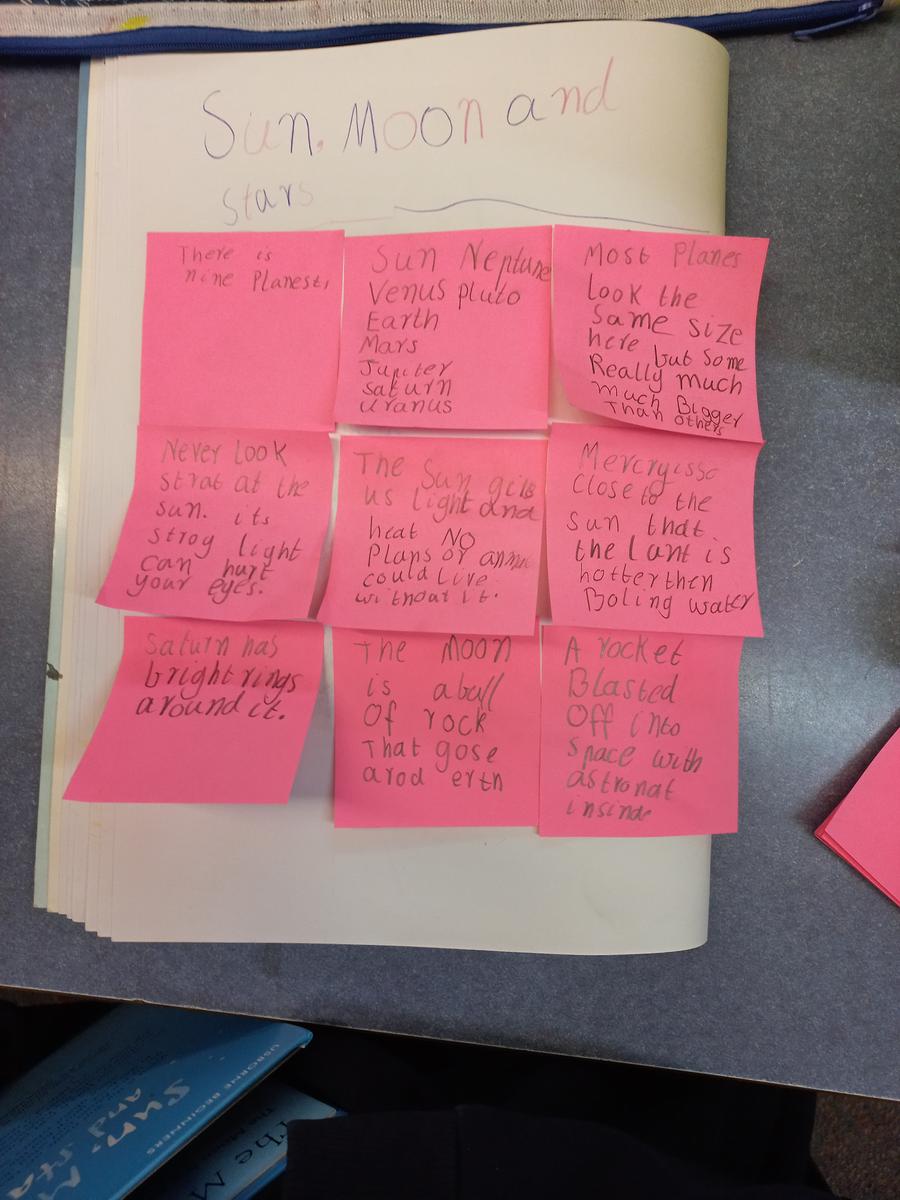 Sun. Moon and
stars
There is
nine Planest,
Sun Neptune
Venus pluto
Earth
Mars
Jupiter
saturn
uranus
Most Planes
look the
same size
here but some
Really much
much Bigger
Than others
Never look
strat at the
sun. its
strog light
can hurt
your eyes.
The Sun givs
us light and
heat No
Plans or
could live
without it.
Mercryisso
close to the
sun that
the lant is
hotterthen
Boling water
Saturn has
bright rings
around it.
The Moon
is aball
Of rock
That gose
arod erth
A rocket
Blasted
Off into
space with
astronat
insinde
USBORNE BEGINNERS
Sun, M
and sta
The M